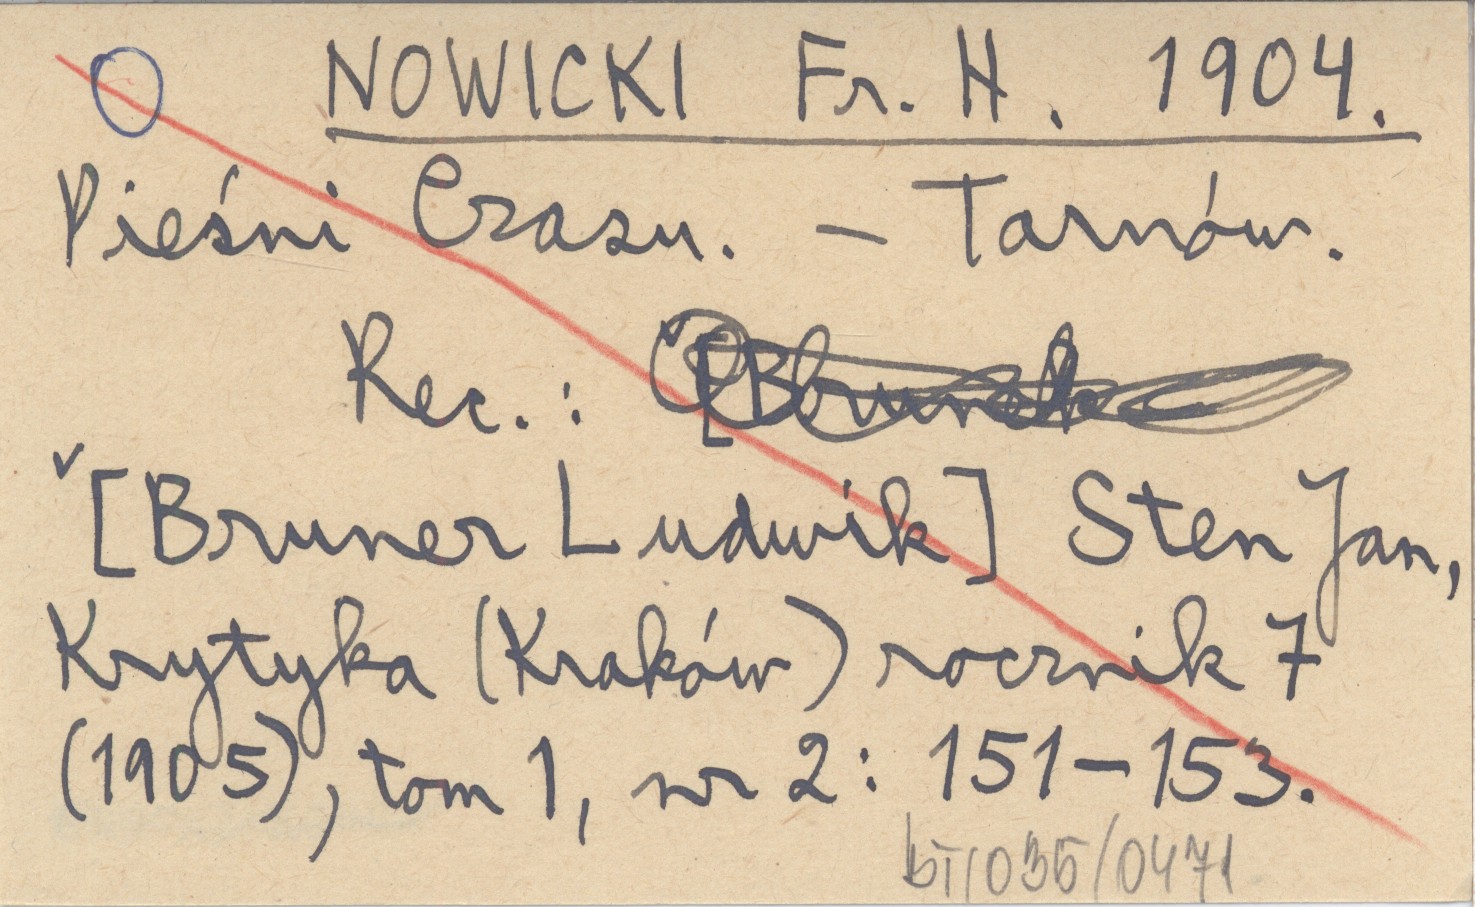 NOWICKI Fr. H. 1904.
Pieśni Czasu. – Tarnów.
Rec.:
[Bruner Ludwik] Sten Jan,
Krytyka (Kraków) rocznik 7
(1905), tom 1, nr 2: 151–153.
bT/035/0471